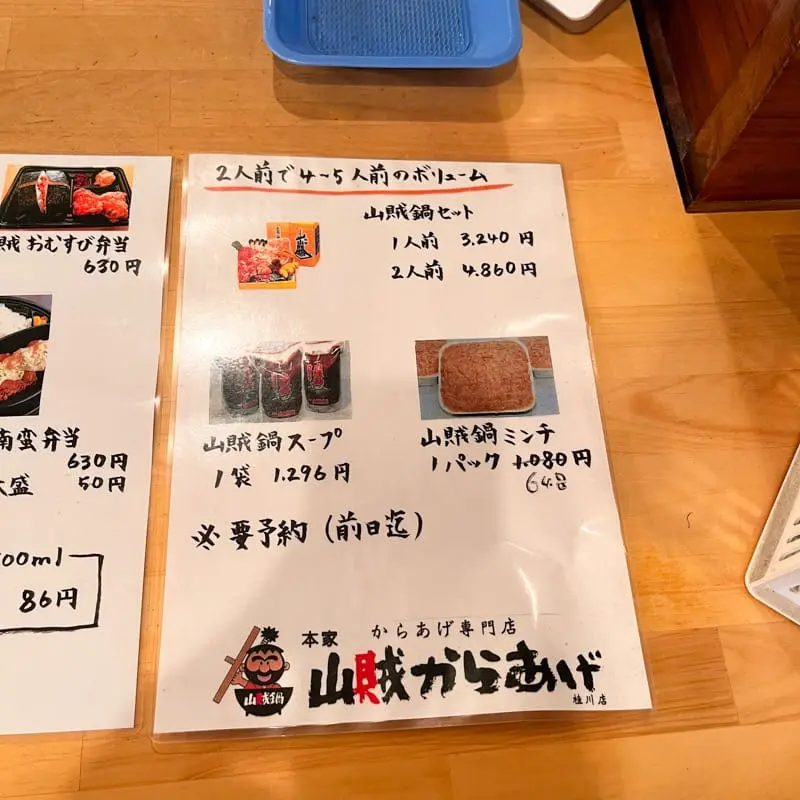 賊 おむすび弁当
630円
南蛮弁当
630円
大盛 50円
00ml
86円
2人前で4~5人前のボリューム
山賊鍋セット
1人前 3.240円
2人前 4.860円
山賊鍋スープ
1袋 1.296円
山賊鍋ミンチ
1パック 1.080円
648
※要予約(前日迄)
本家 からあげ専門店
山賊からあげ
桂川店
山賊鍋